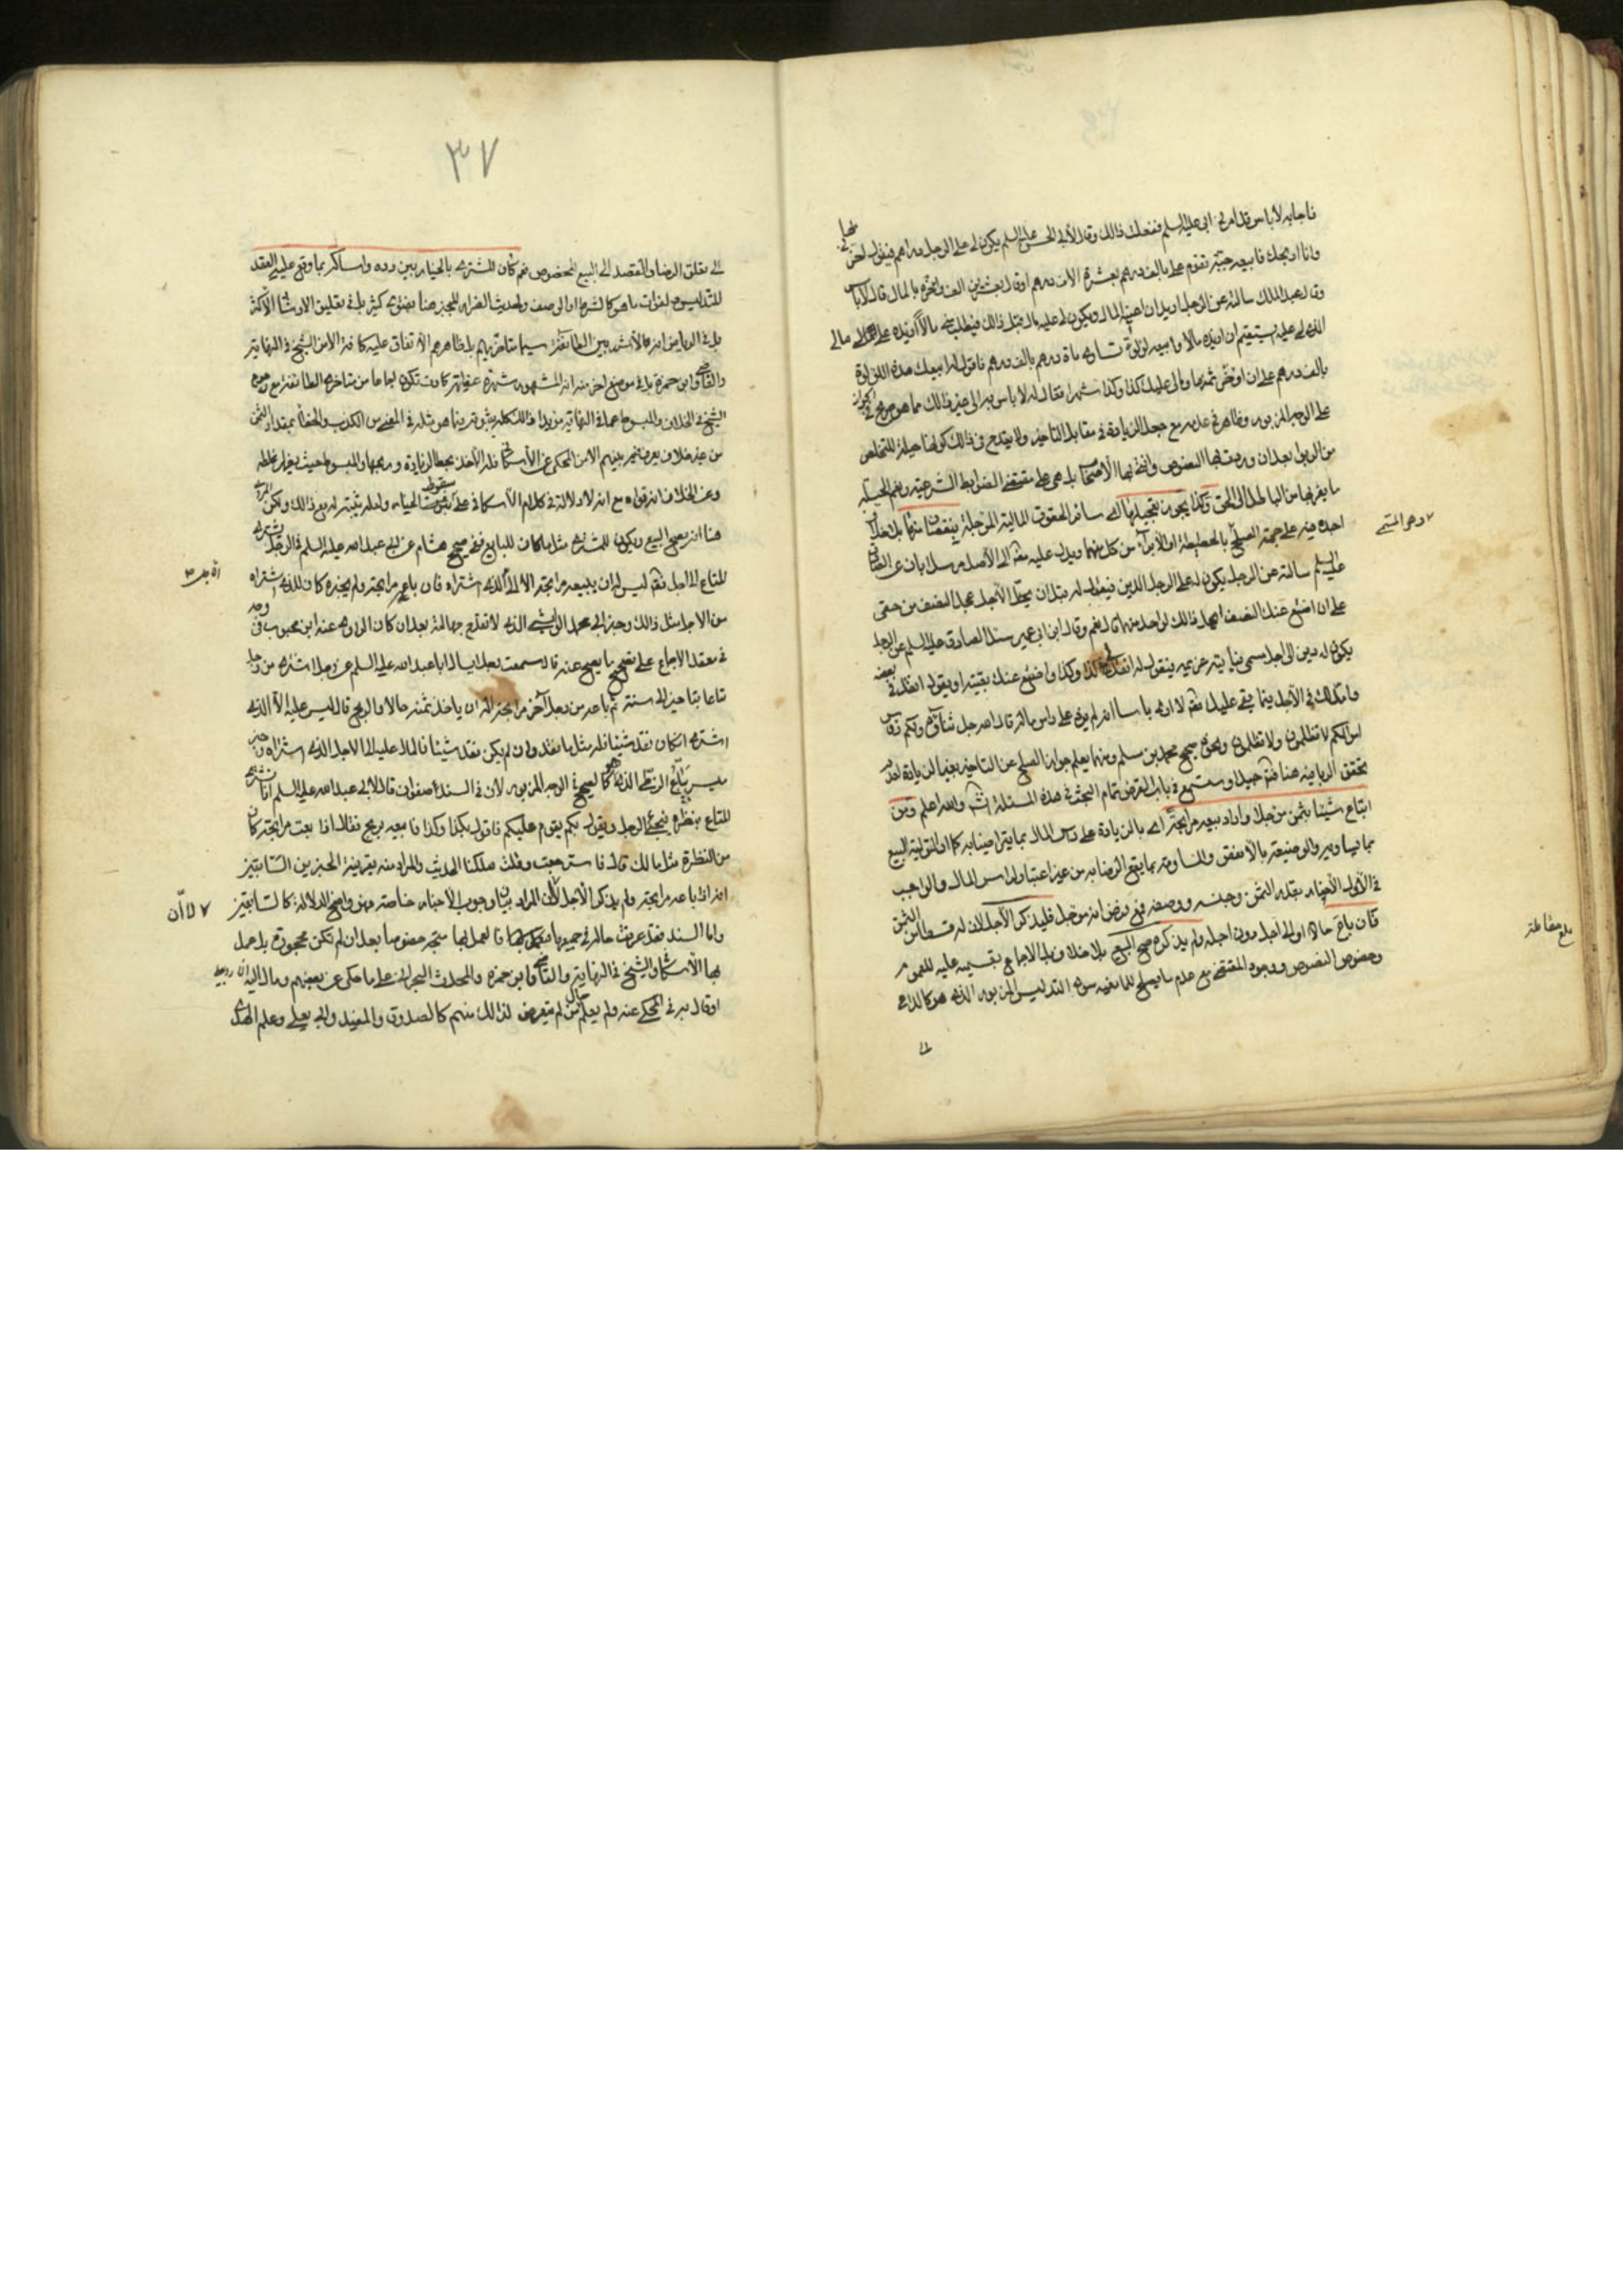 فاجابه لا باس قد امرني ابي عليه السلم ففعلت ذلك وقال لأبي الحسن عليه السلم يكون لي على الرجل دراهم فيقول اخرني بها
وانا اربحك فابيعه جبة تقوم علي بالف درهم بعشرة الاف درهم او قال بعشرين الف واؤخره بالمال قال لا باس
وقال عبد الملك سالته عن الرجل اريد ان اعينه المال ويكون لي عليه مال قبل ذلك فيطلب مني مالا ازيده على مالي
الذي لي عليه يستقيم ان ازيده مالا وابيعه لؤلؤة تساوى ماة درهم بالف درهم فاقول له ابيعك هذه اللؤلؤة
بالف درهم على ان اؤخرك ثمنها ومالي عليك كذا وكذا شهرا فقال له لا باس به الى غير ذلك مما هو صريح في الجواز
على الوجه المزبور وظاهر في عدمه مع جعل الزيادة في مقابل التاخير ولا يقدح في ذلك كونها حيلة للتخلص
من الربوا بعد ان وردت بها النصوص وافتى بها الاصحاب بل هي على مقتضى الضوابط الشرعية ونعم الحيلة
ما يفر بها من الباطل الى الحق وكذا يجوز تعجيلها اي سائر الحقوق المالية المؤجلة بنقصان منها بل خلاف
اجده فيه على جهة الصلح بالحطيطة او الابراء من كل منهما ويدل عليه مرسل ابان عن الصادق
عليه السلم سالته عن الرجل يكون له على الرجل الدين فيقول له قبل ان يحل الأجل عجل النصف من حقي
على ان اضع عنك النصف ايحل ذلك لواحد منهما قال نعم وقال ابن ابي عمير سئل الصادق عليه السلم عن الرجل
يكون له دين الى اجل مسمى فياتيه غريمه فيقول له انقد لي كذا وكذا واضع عنك بقيته او يقول انقد لي بعضه
وامد لك في الأجل فيما بقي عليك لا ارى باسا انه لم يزد على راس ماله قال الله جل ثناؤه ولكم رؤس
اموالكم لا تظلمون ولا تظلمون ونحوه صحيح محمد بن مسلم ومنهما يعلم جواز الصلح عن التاخير بغير الزيادة لعدم
تحقق الربا فيه هنا جيدا وستسمع في باب القرض تمام البحث في هذه المسئلة انش والله اعلم ومن
ابتاع شيئا بثمن مؤجلا واراد بيعه مرابحة اي بالزيادة على راس المال بما يتراضيا به كما ان التولية البيع
بما يساويه والوضيعة بالانقص والمساومة بما يقع الرضا به من غير اعتبار لراس المال والواجب
في الاول الأخبار بقدر الثمن وجنسه ووصفه ففي فرض انه مؤجل فليذكر الاجل لان له قسطا من الثمن
فان باع حالا او الى اجل دون اجله ولم يذكره صح البيع بلا خلاف بل الاجماع بقسميه عليه للعموم
وخصوص النصوص ووجود المقتضي مع عدم ما يصلح للمانعية سوى التدليس المزبور الذي هو كالداعي
وهو المستمر
بلغ مقابلة
الى
٣٧
الى تعلق الرضا والقصد الى البيع المخصوص نعم كان المشتري بالخيار بين رده وامساكه بما وقع عليه العقد
للتدليس وفوات ما هو كالشرط او الوصف ولحديث الضرار المجبر هنا بفتوى كثير بل في تعليق الارشاد الأكثر
بل في الرياض انه الاشهر بين الطائفة سيما متاخريهم بل ظاهرهم الاتفاق عليه كافة الا من الشيخ في النهاية
والقاضي وابن حمزة بل في موضع اخر منه انه المشهور شهرة عظيمة كادت تكون اجماعا من متاخري الطائفة مع رجوع
الشيخ في الخلاف والمبسوط عما في النهاية مؤيدا ذلك كله بثبوته فيما هو مثله في المعنى من الكذب والخطأ بمقدار الثمن
من غير خلاف يعرف فيه بينهم الا من المحكي عن الاسكافي فله الأخذ بحط الزيادة وربحها والمبسوط حيث
وعن الخلاف انه قواه مع انه لا دلالة في كلام الاسكافي على سقوط الخيار ولعله يثبته له مع ذلك ولكن المروي
هنا انه يصح البيع ويكون للمشتري مثل ما كان للبايع ففي صحيح هشام عن ابي عبد الله عليه السلم في الرجل يشتري
المتاع الى اجل ليس له ان يبيعه مرابحة الا الى الأجل الذي اشتراه فان باعه مرابحة ولم يخبره كان للذي اشتراه
من الاجل مثل ذلك وخبر ابي محمد الوابشي الذي لا تقدح جهالته بعد ان كان الراوي عنه ابن محبوب وقد
في معقد الاجماع على تصحيح ما يصح عنه قال سمعت رجلا يسال ابا عبد الله عليه السلم عن رجل اشترى من رجل
متاعا بتاخير الى سنة ثم باعه من رجل آخر مرابحة اله ان ياخذ ثمنه حالا والربح قال ليس عليه الا الذي
اشترى ان كان نقد شيئا فله مثل ما نقد وان لم يكن نقد شيئا فالمال عليه الى الاجل الذي اشتراه وخبر
ميسر بياع الزطي الذي هو كالصحيح في الوجه المزبور لان في السند صفوان قال لأبي عبد الله عليه السلم انا نشتري
المتاع بنظرة فيجئ الرجل ويقول بكم يقوم عليكم فاقول بكذا وكذا فابيعه بربح فقال اذا بعته مرابحة كان
من النظرة مثل مالك قال فاسترجعت وقلت هلكنا الحديث والمراد منه بقرينة الخبرين السابقين
انه اذا باعه مرابحة ولم يذكر الأجل لان المراد بيان وجوب الأخبار خاصة فهو واضح الدلالة كالسابقين
واما السند فقد عرفت حاله في جميعها فالعمل بها متجه خصوصا بعد ان لم تكن مهجورة بل عمل
بها الاسكافي والشيخ في النهاية والقاضي وابن حمزة والمحدث البحراني على ما حكي عن بعضهم ومال اليه
او قال به في المحكي عنه ولم يعلم حال من لم يتعرض لذلك منهم كالصدوق والمفيد وابي يعلى وعلم الهدى
لا ان